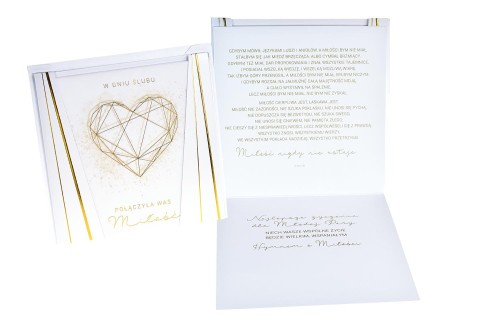 W DNIU ŚLUBU
POŁĄCZYŁA WAS
Miłość
GDYBYM MÓWIŁ JĘZYKAMI LUDZI I ANIOŁÓW, A MIŁOŚCI BYM NIE MIAŁ,
STAŁBYM SIĘ JAK MIEDŹ BRZĘCZĄCA, ALBO CYMBAŁ BRZMIĄCY.
GDYBYM TEŻ MIAŁ DAR PROROKOWANIA I ZNAŁ WSZYSTKIE TAJEMNICE,
I POSIADAŁ WSZELKĄ WIEDZĘ, I WSZELKĄ WIARĘ,
TAK IŻBYM GÓRY PRZENOSIŁ, A MIŁOŚCI BYM NIE MIAŁ, BYŁBYM NICZYM.
I GDYBYM ROZDAŁ NA JAŁMUŻNĘ CAŁĄ MAJĘTNOŚĆ MOJĄ,
A CIAŁO WYSTAWIŁ NA SPALENIE,
LECZ MIŁOŚCI BYM NIE MIAŁ, NIC BYM NIE ZYSKAŁ.
MIŁOŚĆ CIERPLIWA JEST, ŁASKAWA JEST.
MIŁOŚĆ NIE ZAZDROŚCI, NIE SZUKA POKLASKU, NIE UNOSI SIĘ PYCHĄ,
NIE DOPUSZCZA SIĘ BEZWSTYDU, NIE SZUKA SWEGO,
NIE UNOSI SIĘ GNIEWEM, NIE PAMIĘTA ZŁEGO,
NIE CIESZY SIĘ Z NIESPRAWIEDLIWOŚCI, LECZ WSPÓŁWESELI SIĘ Z PRAWDĄ.
WSZYSTKO ZNOSI, WSZYSTKIEMU WIERZY,
WE WSZYSTKIM POKŁADA NADZIEJĘ, WSZYSTKO PRZETRZYMA.
Miłość nigdy nie ustaje
Najlepsze życzenia
dla Młodej Pary
NIECH WASZE WSPÓLNE ŻYCIE
BĘDZIE WIELKIM, WSPANIAŁYM
Hymnem o Miłości